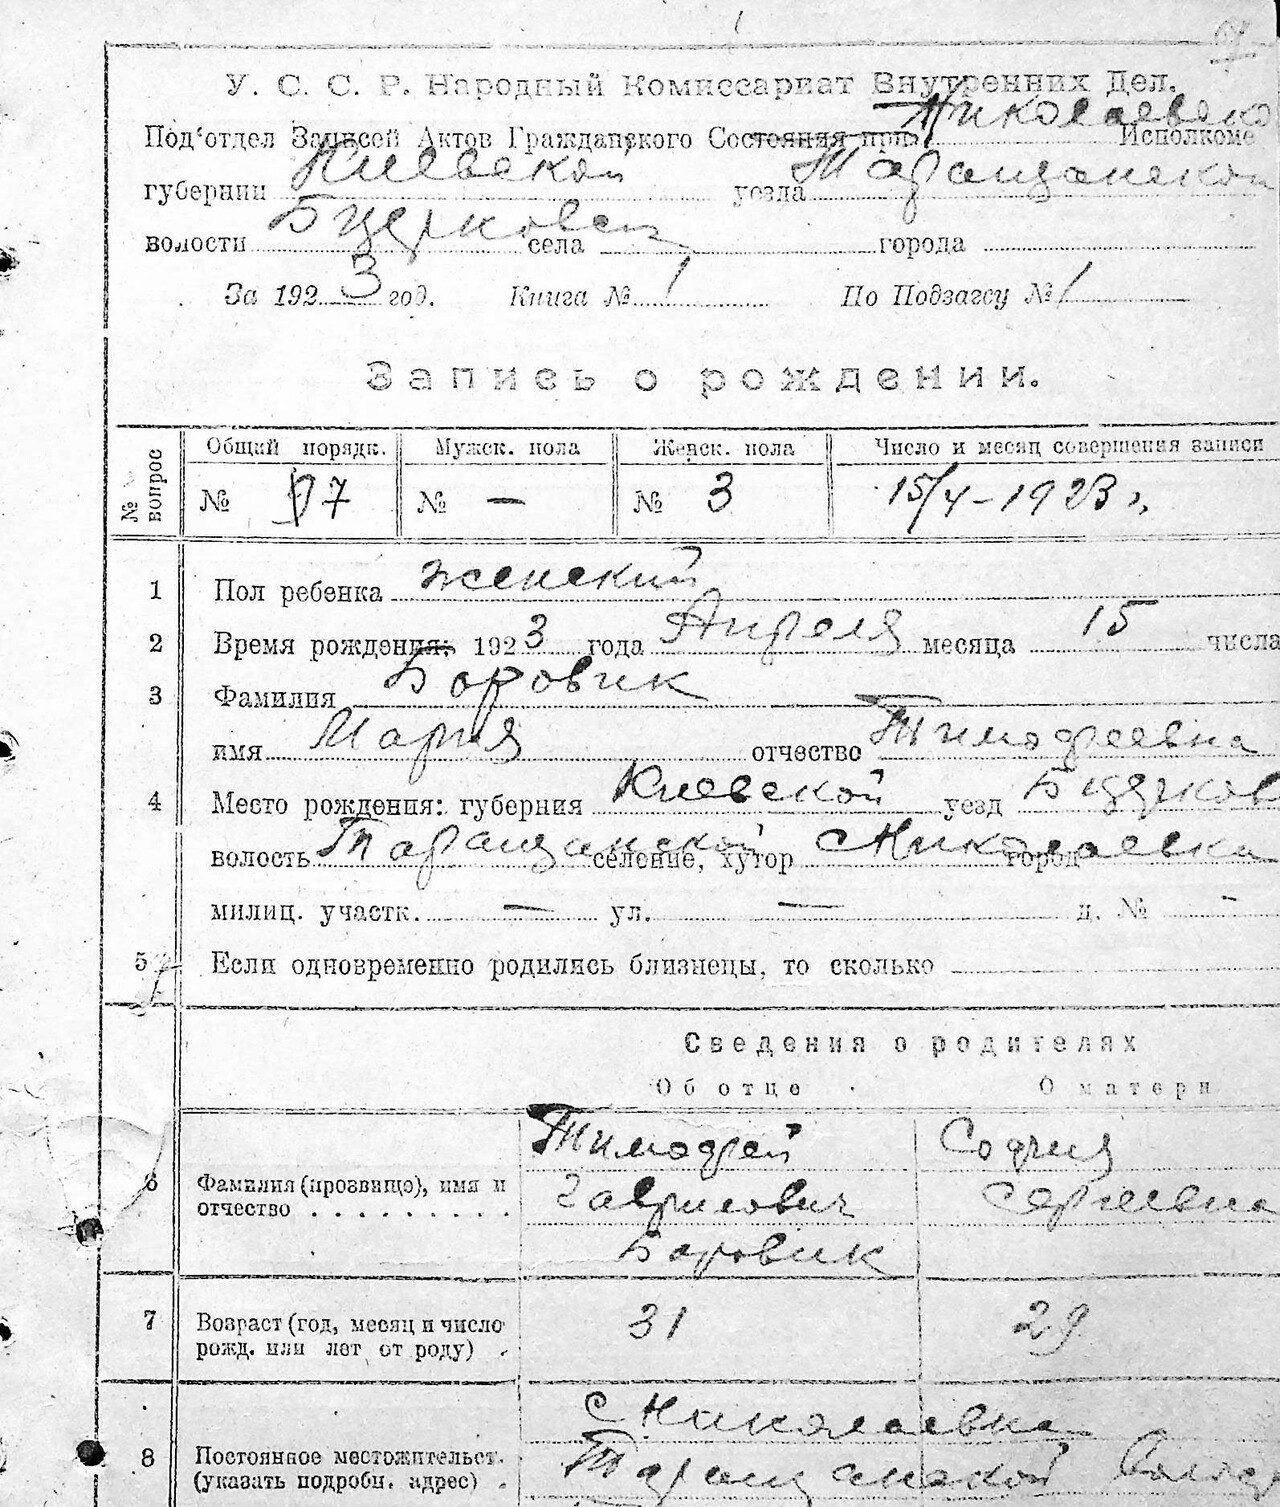 У. С. С. Р. Народный Комиссариат Внутренних Дел.
Под'отдел Записей Актов Гражданского Состояния при Николаевско Исполкоме
губернии Киевской уезда Таращанской
волости Бцерковск села города
За 1923 год. Книга № 1 По Подзагсу № 1
Запись о рождении.
№ вопрос Общий порядк. Мужск. пола Женск. пола Число и месяц совершения записи
№ 7 № — № 3 15/4-1923 г.
1 Пол ребенка женский
2 Время рождения: 1923 года Апреля месяца 15 числа
3 Фамилия Боровик
имя Мария отчество Тимофеевна
4 Место рождения: губерния Киевской уезд Бцерков
волость Таращанской селение, хутор с Николаевка город
милиц. участк. — ул. — д. № -
5 Если одновременно родились близнецы, то сколько
Сведения о родителях
Об отце О матери
6 Фамилия (прозвище), имя и отчество . . . . . . . . . Тимофей Гаврилович Боровик София Сергеевна
7 Возраст (год, месяц и число рожд. или лет от роду) . 31 29
8 Постоянное местожительст. (указать подробн. адрес) . с Николаевка
Таращанской